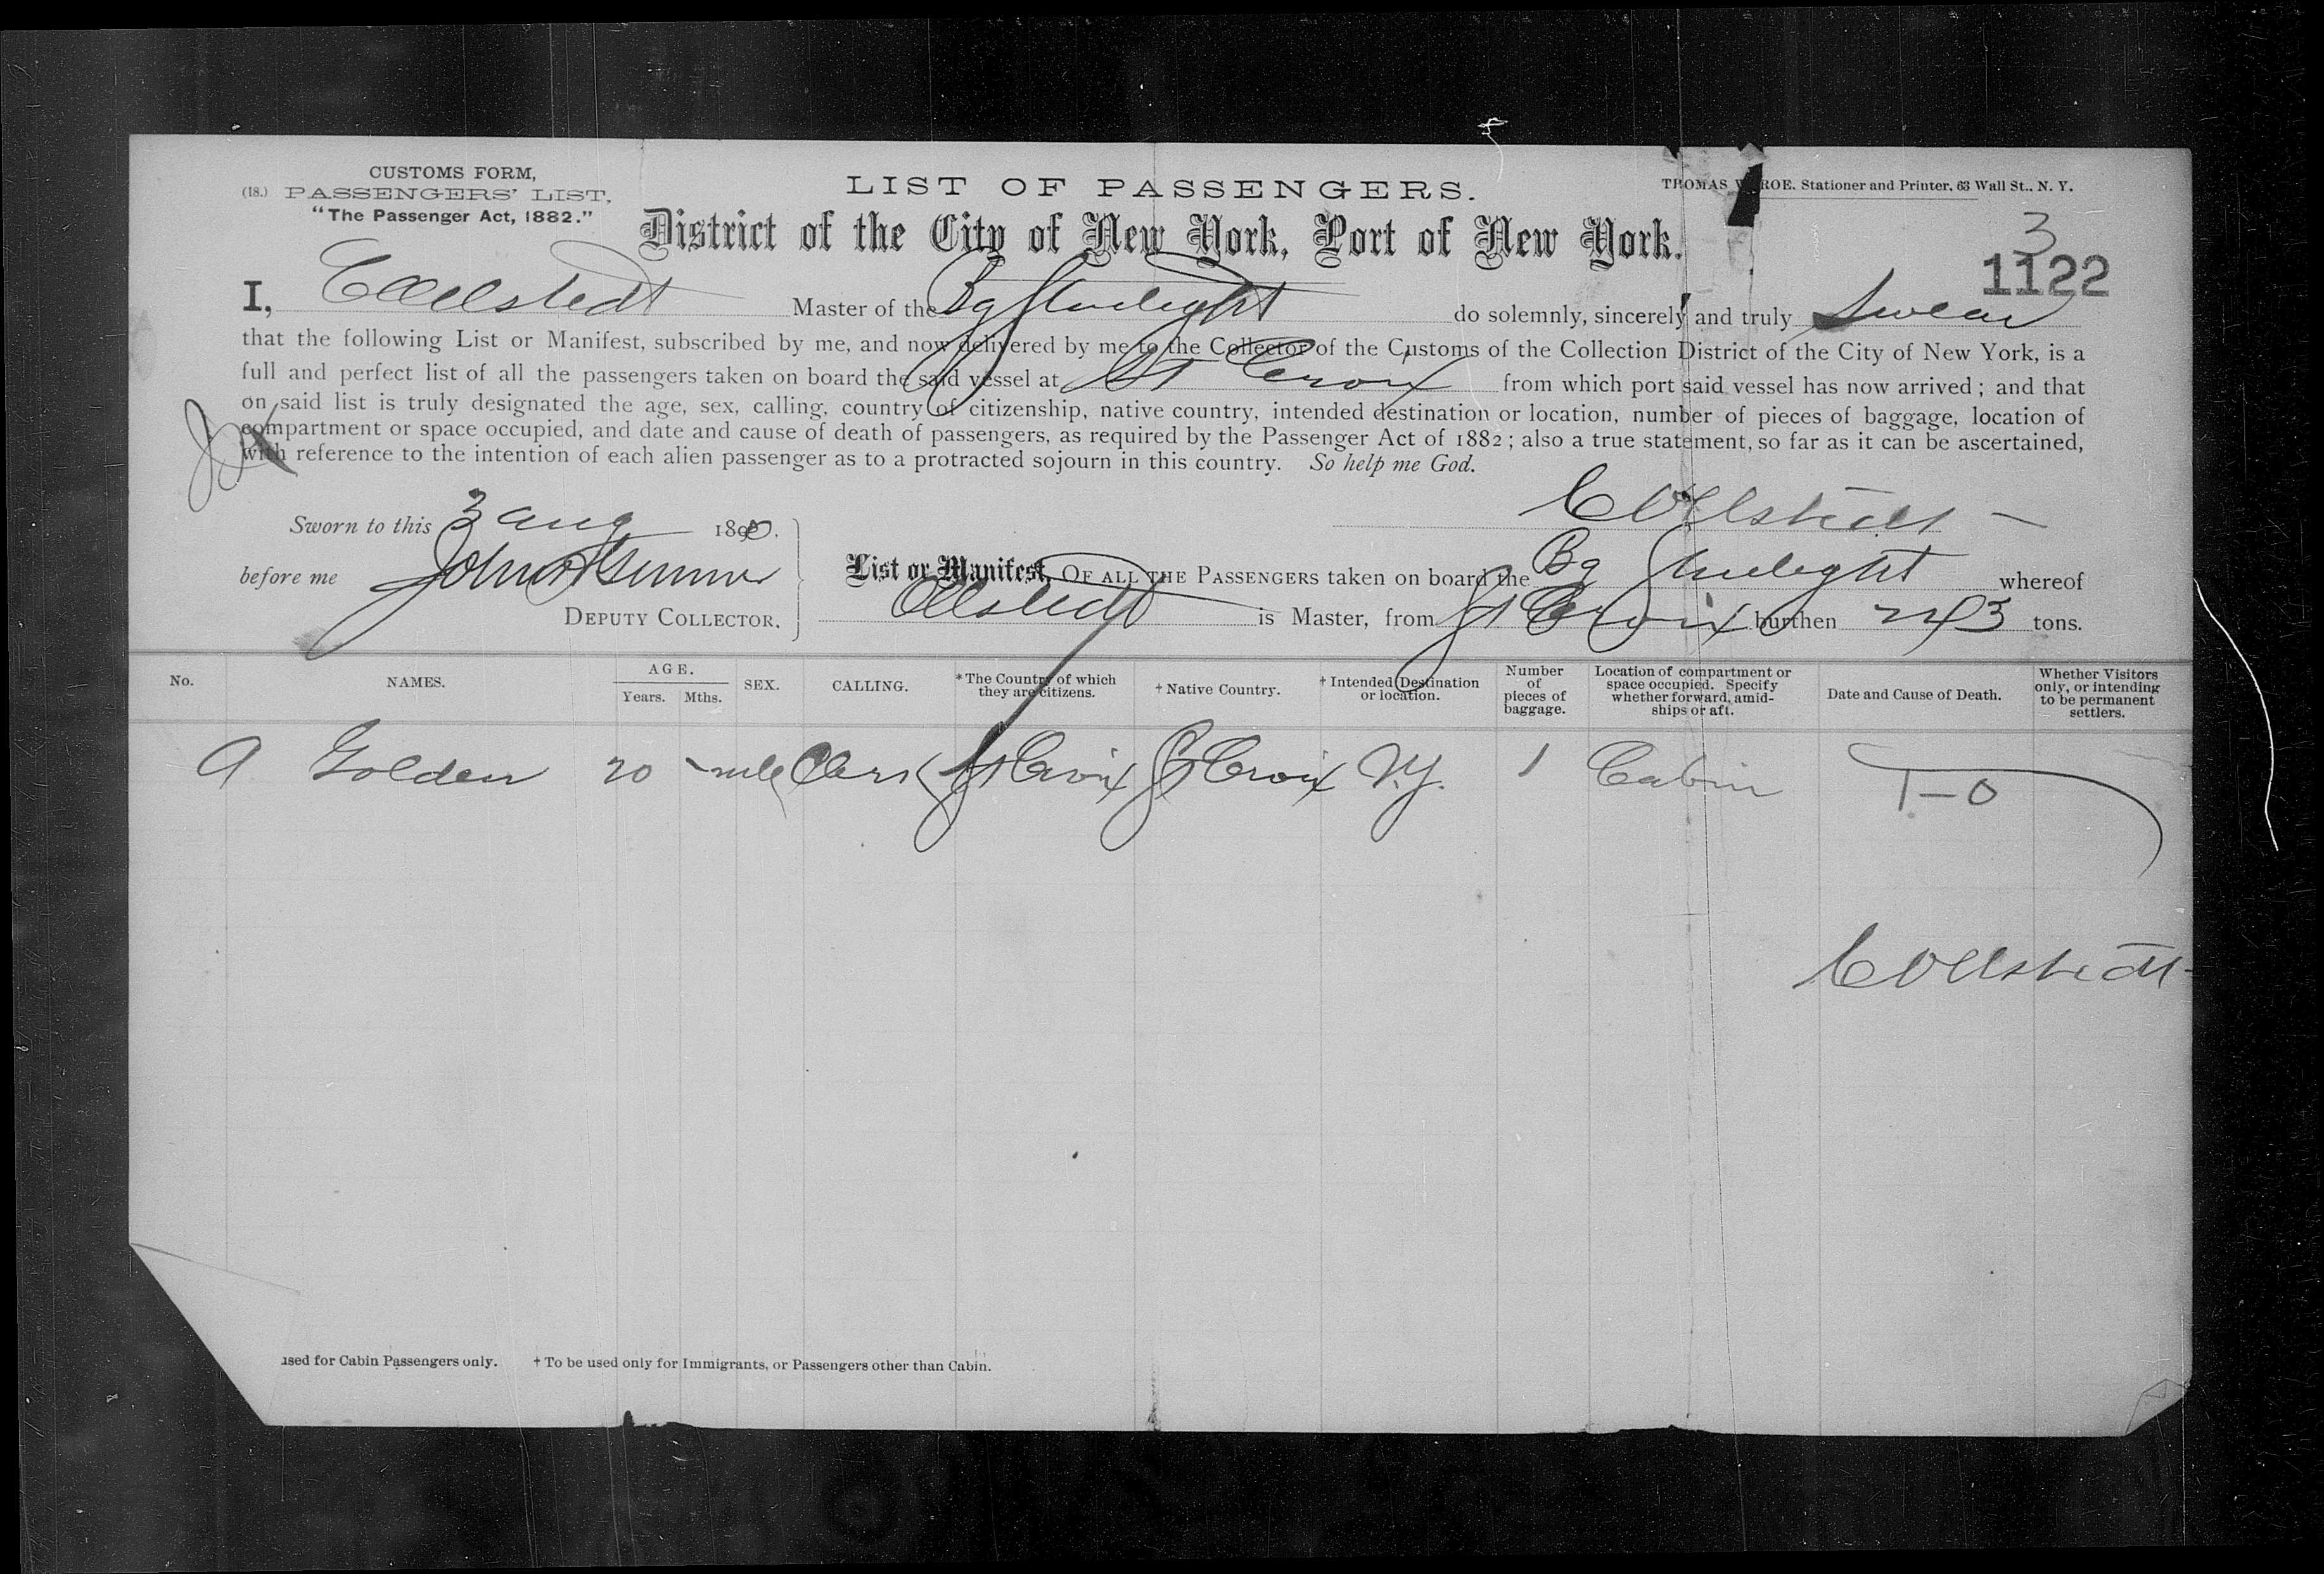 CUSTOMS FORM,
(18.) PASSENGERS' LIST,
"The Passenger Act, 1882."
LIST OF PASSENGERS.
THOMAS W. ROE. Stationer and Printer, 63 Wall St., N. Y.
District of the City of New York, Port of New York.
3
1122
I, C Ollstedt Master of the Bg Starlight do solemnly, sincerely and truly Swear
that the following List or Manifest, subscribed by me, and now delivered by me to the Collector of the Customs of the Collection District of the City of New York, is a
full and perfect list of all the passengers taken on board the said vessel at St Croix from which port said vessel has now arrived; and that
on said list is truly designated the age, sex, calling, country of citizenship, native country, intended destination or location, number of pieces of baggage, location of
compartment or space occupied, and date and cause of death of passengers, as required by the Passenger Act of 1882; also a true statement, so far as it can be ascertained,
with reference to the intention of each alien passenger as to a protracted sojourn in this country. So help me God.
C Ollstedt
Sworn to this 3 aug 1890.
before me John
DEPUTY COLLECTOR.
List or Manifest, OF ALL THE PASSENGERS taken on board the Bg Starlight whereof
Ollstedt is Master, from St Croix burthen 243 tons.
No. NAMES. AGE. Years. Mths. SEX. CALLING. *The Country of which they are citizens. † Native Country. † Intended Destination or location. Number of pieces of baggage. Location of compartment or space occupied. Specify whether forward, amidships or aft. Date and Cause of Death. Whether Visitors only, or intending to be permanent settlers.
A Golden 20 - male Clerk St Croix St Croix N.Y. 1 Cabin 1-0
C Ollstedt
used for Cabin Passengers only. † To be used only for Immigrants, or Passengers other than Cabin.